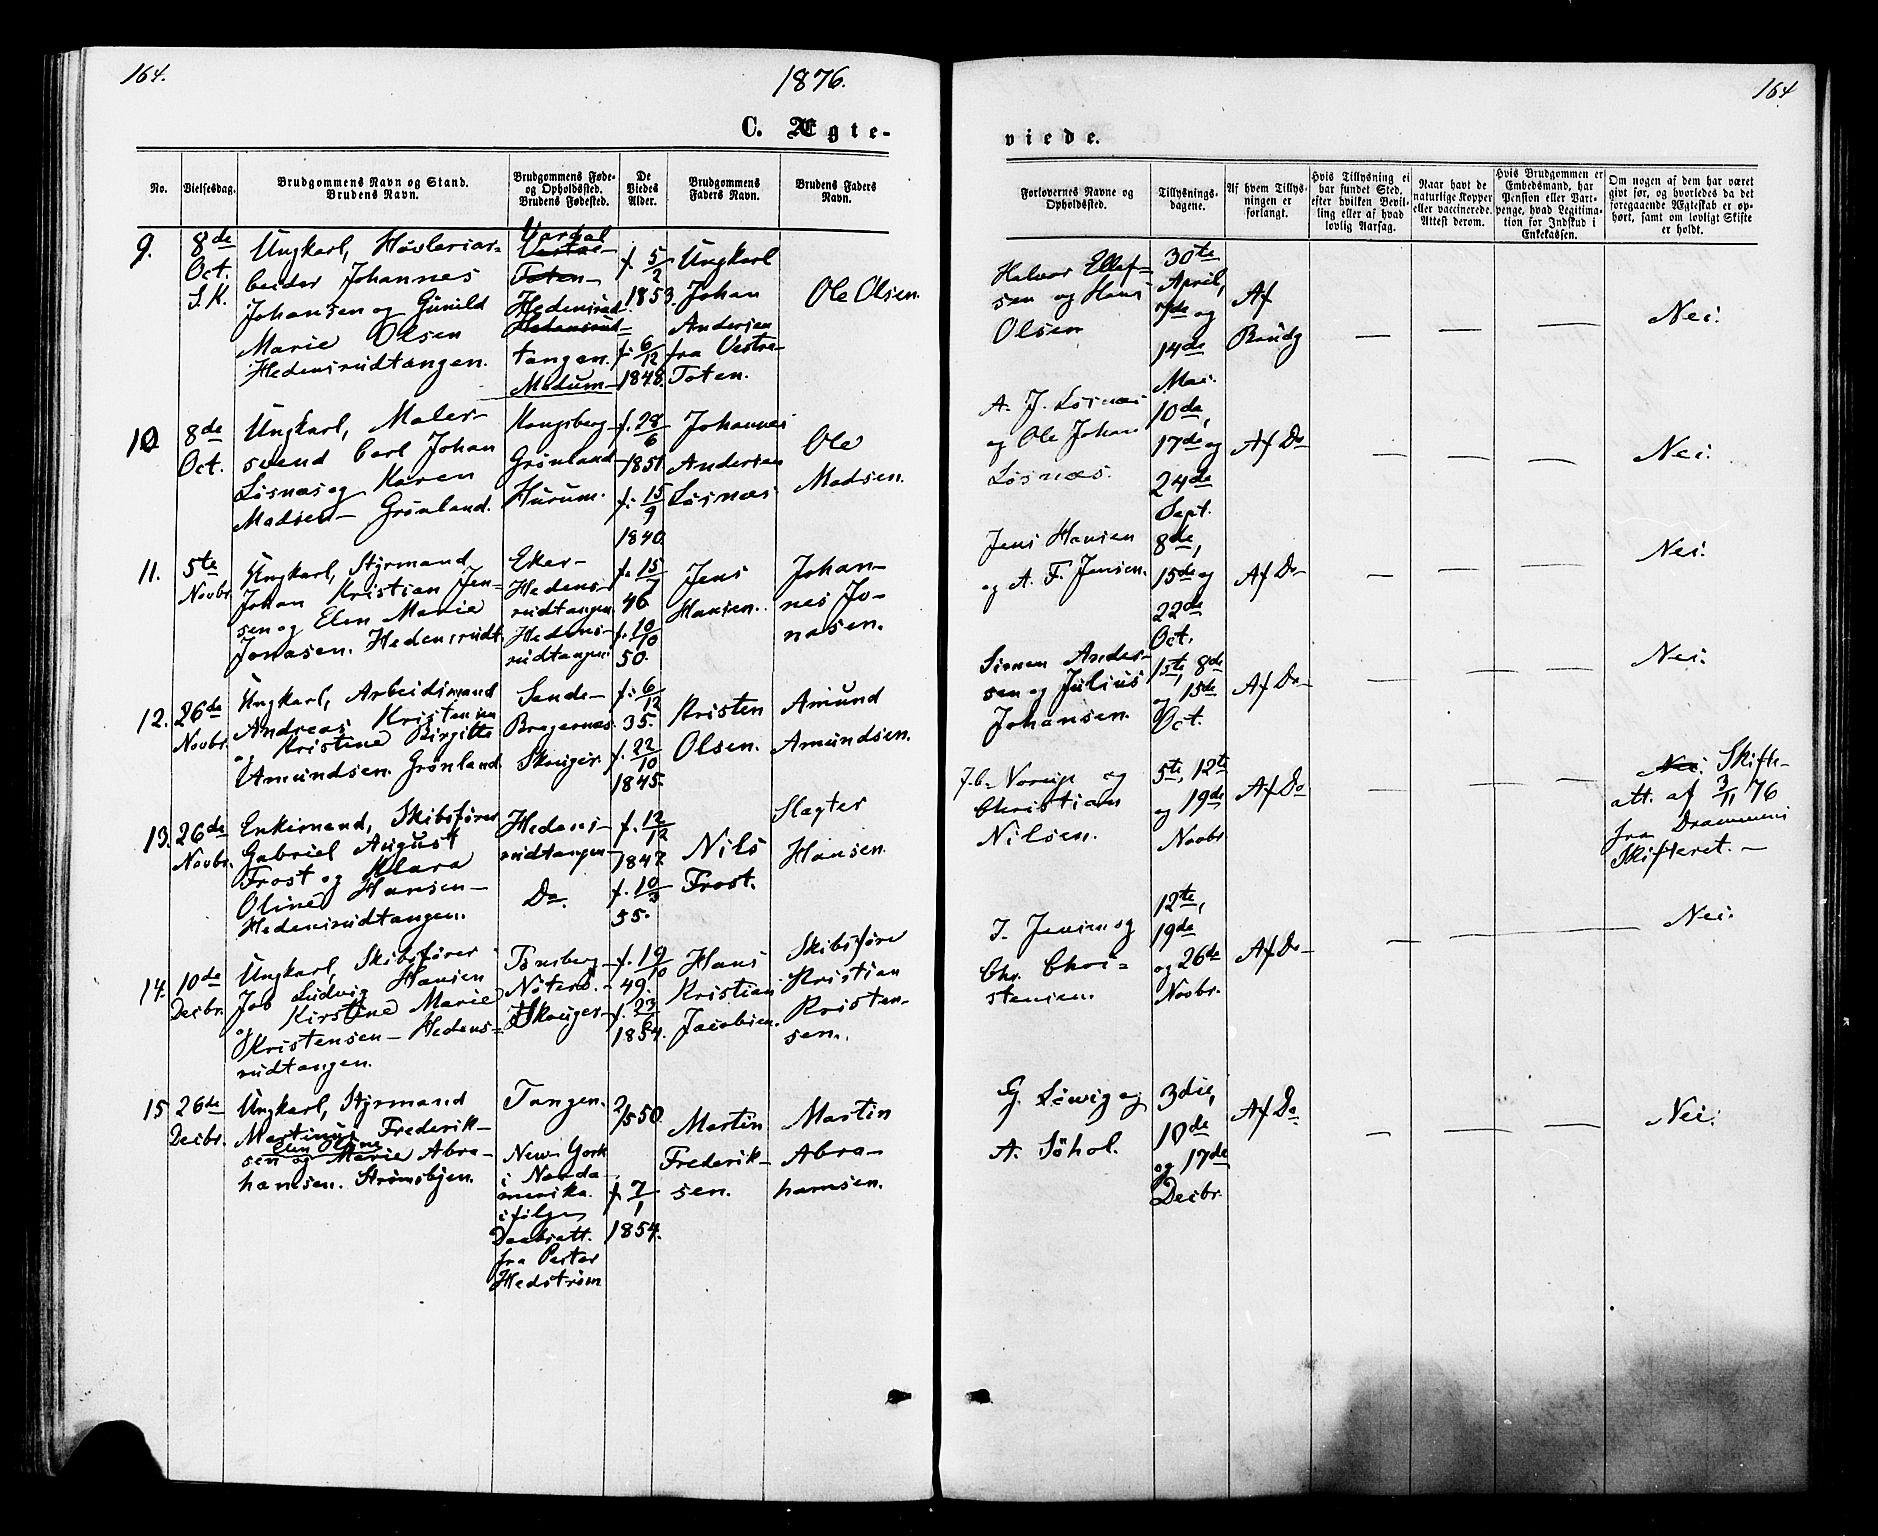 164.
1876.
C. Ægte-
No.
Vielsesdag.
Brudgommens Navn og Stand.
Brudens Navn.
Brudgommens Føde-
og Opholdssted.
Brudens Fødested.
De
Viedes
Alder.
Brudgommens
Faders Navn.
Brudens Faders
Navn.
9.
8de
Oct.
S.K.
Ungkarl, Høvleriar-
beider Johannes
Johansen og Gunild
Marie Olsen
Hedensrudtangen.
Vardal
Toten
Hedensrud-
tangen.
Modum
f. 5/2
1853.
f. 6/12
1848.
Ungkarl
Johan
Andersen
fra Vestre-
Toten.
Ole Olsen.
10
8de
Oct.
Ungkarl, Maler-
svend Carl Johan
Løsnæs og Karen
Madsen - Grønland.
Kongsberg
Grønland
Hurum.
f. 28/6
1851
f. 15/9
1840.
Johannes
Andersen
Løsnæs
Ole
Madsen.
11.
5te
Novbr.
Ungkarl, Styrmand
Johan Kristian Jen-
sen og Elen Marie
Jonasen. Hedensrudt.
Eker-
Hedens-
rudtangen
Hedens-
rudtangen
f. 15/7
46
f. 10/10
50.
Jens
Hansen.
Johan-
nes Jo-
nasen.
12.
26de
Novbr.
Ungkarl, Arbeidsmand
Andreas Kristensen
og Kristine Birgitte
Amundsen. Grønland.
Sande-
Bragernæs
Skouger.
f. 6/12
35.
f. 22/10
1845.
Kristen
Olsen.
Amund
Amundsen.
13.
26de
Novbr.
Enkemand, Skibsfører
Gabriel August
Frost og Klara
Oline Hansen -
Hedensrudtangen.
Hedens-
rudtangen-
Do.
f. 12/12
1847
f. 10/3
55.
Nils
Frost.
Slagter
Hansen.
14.
10de
Decbr.
Ungkarl, Skibsfører
Job Ludvig Hansen
og Kirstine Marie
Kristensen - Hedens-
rudtangen.
Tønsberg
Nøterø.
Skouger
f. 19/10
49.
f. 23/6
1854.
Hans
Kristian
Jacobsen.
Skibsføre
Kristian
Kristen-
sen.
15
26de
Decbr.
Ungkarl, Styrmand
Martinus Frederik-
Elen Oline
sen og Marie Abra-
hamsen. Strømsbyen.
Tangen.
New-York
i Norda-
merika.
ifølge
Daabsatt.
fra Pastor
Hedstrøm
2/5 50
f. 7/1
1854.
Martin
Frederik-
sen.
Martin
Abra-
hamsen.
164
viede.
Forlovernes Navne og
Opholdssted.
Tillysnings-
dagene.
Af hvem Tillys-
ningen er
forlangt.
Hvis Tillysning ei
har fundet Sted,
efter hvilken Bevil-
ling eller af hvad
lovlig Aarsag.
Naar havt de
naturlige Kopper
eller vaccinerede.
Attest derom.
Hvis Brudgommen er
Embedsmand, har
Pension eller Vart-
penge, hvad Legitima-
tion for Indskud i
Enkekassen.
Om nogen af dem har været
givt før, og hvorledes da det
foregaaende Ægteskab er op-
hørt, samt om lovligt Skifte
er holdt.
Halvor Ellef-
sen og Hans
Olsen
30te
April,
7de og
14de
Mai.
Af
Brudg
—
—
—
Nei.
A. J. Løsnæs
og Ole Johan
Løsnæs.
10de,
17de og
24de
Sept.
Af Do
—
—
—
Nei.
Jens Hansen
og A. F. Jensen.
8de,
15de og
22de
Oct.
Af Do
—
—
—
Nei.
Simen Ander-
sen og Julius
Johansen.
1ste, 8de
og 15de
Oct.
Af Do
—
—
—
Nei.
Christian
Nilsen.
5te, 12te
og 19de
Novbr.
Af Do
—
—
—
Nei. Skifte-
att. af 3/11 76
fra Drammens
Skifteret. —
J. Jensen og
Chr. Chri-
stensen.
12te,
19de
og 26de
Novbr.
Af Do
—
—
—
Nei.
G. Løwig og
A. Søhol.
3die,
10de
og 17de
Decbr.
Af Do
—
—
—
Nei.